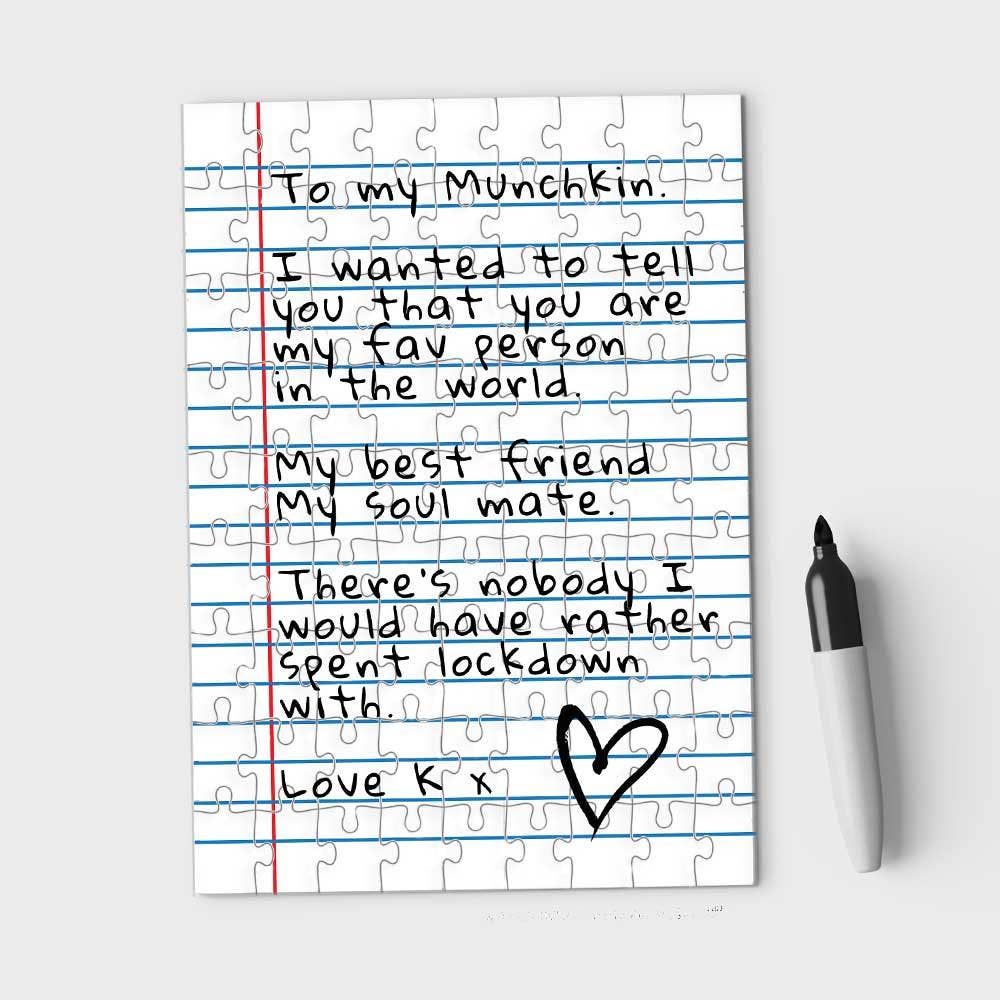 To my Munchkin.
I wanted to tell
you that you are
my fav person
in the world.
My best friend
My soul mate.
There's nobody I
would have rather
spent lockdown
with.
Love K x